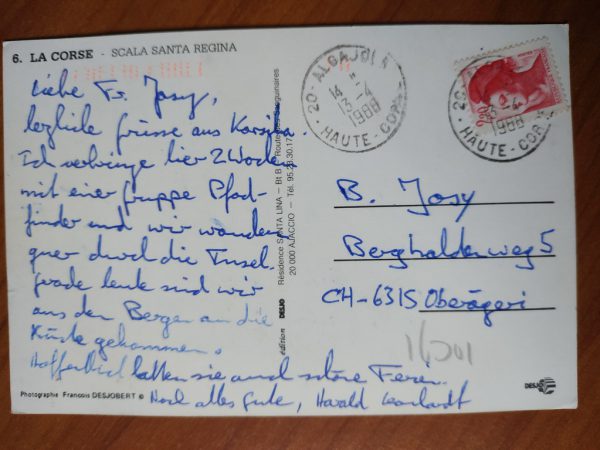 6. LA CORSE - SCALA SANTA REGINA
Liebe Fr. Josy,
herzliche grüsse aus Korsika.
Ich verbringe hier 2 Wochen
mit einer gruppe Pfad-
finder und wir wandern
quer durch die Insel.
grade heute sind wir
aus den Bergen an die
Küste gekommen.
Hoffentlich hatten sie auch schöne Ferien.
Noch alles gute, Harald
Photographie Francois DESJOBERT ©
édition DESJO
Résidence SANTA LINA - Bt B Route des Sanguinaires
20 000 AJACCIO - Tél. 95.23.30.17
20 - ALGAJOLA
14 H
13-4
1988
HAUTE-CORSE
13-4
1988
HAUTE-COR
B. Josy
Berghaldenweg 5
CH-6315 Oberägeri
DESJO